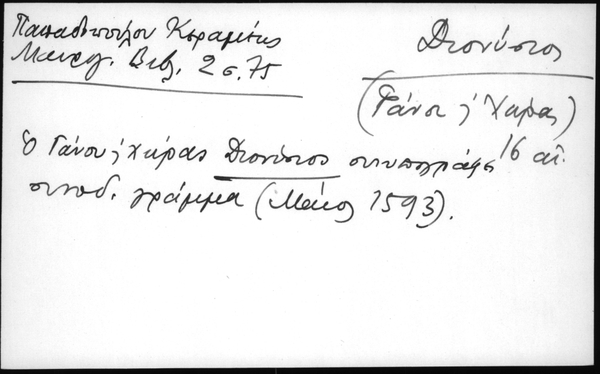 Παπαδοπούλου Κεραμέως
Μαυρογ. Βιβ. 2 σ. 75
Διονύσιος
(Γάνου & Χώρας)
16 αἰ.
ὁ Γάνου & Χώρας Διονύσιος συνυπογράφει
συνοδ. γράμμα (Μάιος 1593).